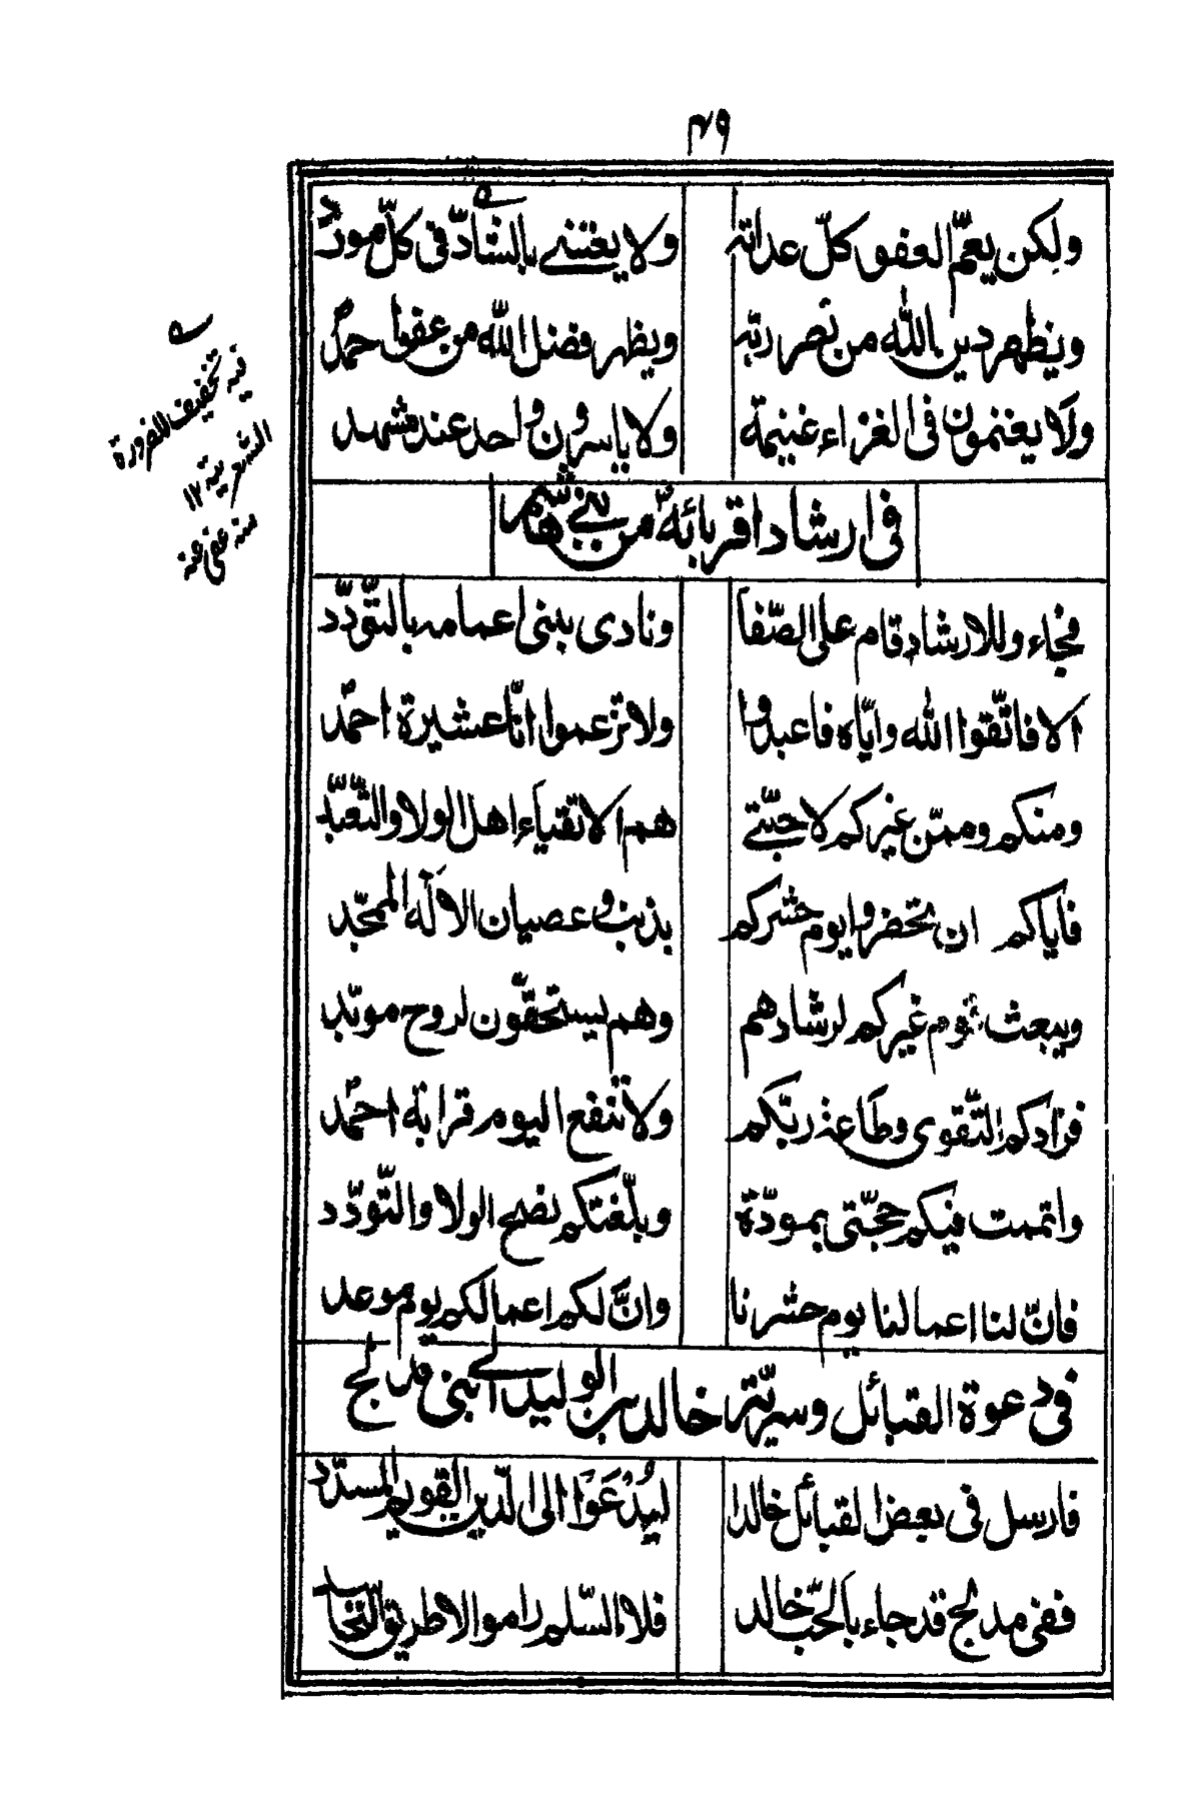 ۴۹
ولكن يعمّ العفو كلّ عداته ولا يعتنى بالشادّ فى كلّ مورد
ويظهر دين الله من نصر ربّه ويظهر فضل الله من عفو احمدٌ
ولا يغنمون فى الغزاء غنيمة ولا ياسرون واحد عند مشهد
فى ارشاد اقربائهٖ من بنى هاشم
فجاء وللارشاد قام على الصّفا ونادى ببنى اعمامه بالتّودّد
الا فاتّقوا الله وايّاه فاعبدوا ولا تزعموا انّا عشيرة احمدٌ
ومنكم وممّن غيركم لاحبّتى هم الاتقياء اهل الولا والتّعبّد
فاياكم ان تحضروا يوم حشركم بذنب وعصيان الاله الممجّد
ويبعث قوم غيركم لرشادهم وهم يستحقّون لروح مويّد
فزادكم التّقوى وطاعة ربّكم ولا تنفع اليوم قرابة احمدٌ
واتممت فيكم حجّتى بمودّة وبلّغتكم نصح الولا والتّودّد
فانّ لنا اعمالنا يوم حشرنا وانّ لكم اعمالكم يوم موعد
فى دعوة القبائل وسريّة خالد بن الوليد الى بنى مدلج
فارسل فى بعض القبائل خالدا ليدعوا الى الدّين القويم المسدّد
ففى مدلج قد جاء بالحّب خالد فلا السّلم راموا لا طريق التّحاسد
فيه تخفيف للضرورة
الشعرية ١٢
منه عفى عنه